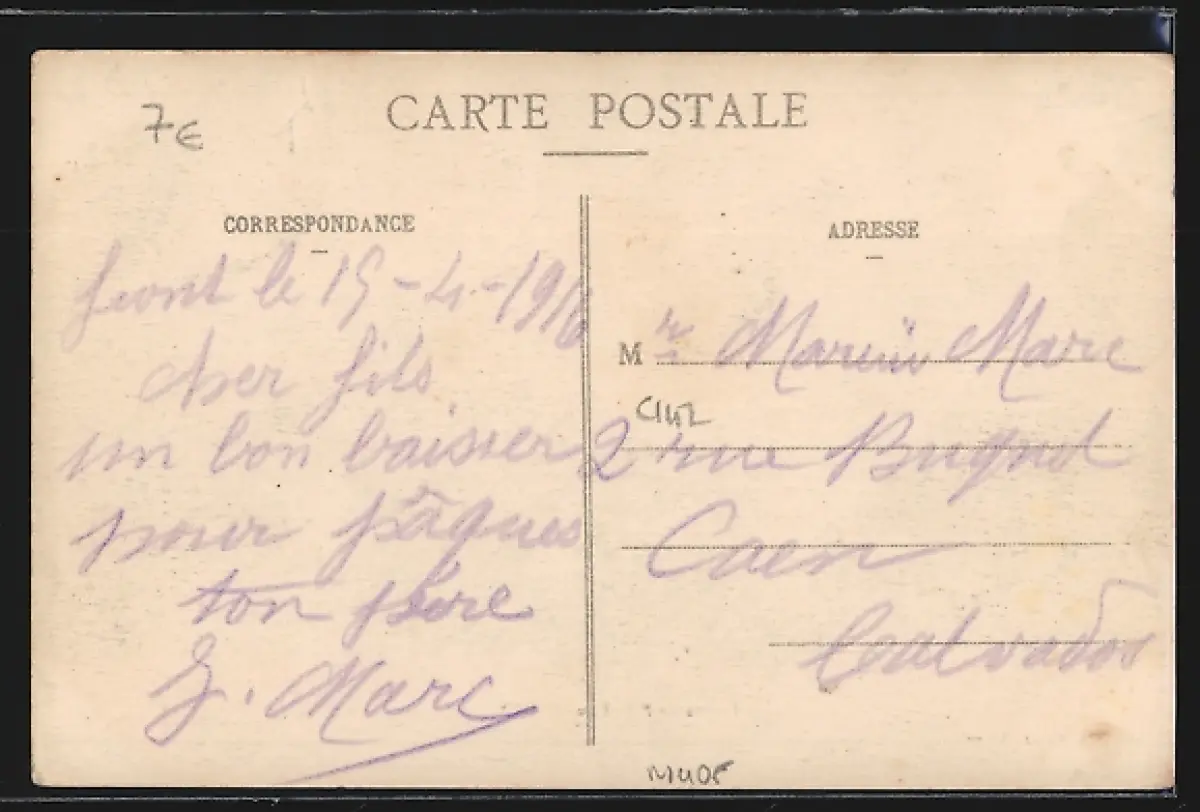 7€
CARTE POSTALE
CORRESPONDANCE
front le 15-4-1916
cher fils
un bon baisser
pour pâques
ton père
G. Marc
ADRESSE
Mr Marc
2 rue Bugnet
Caen
Calvados